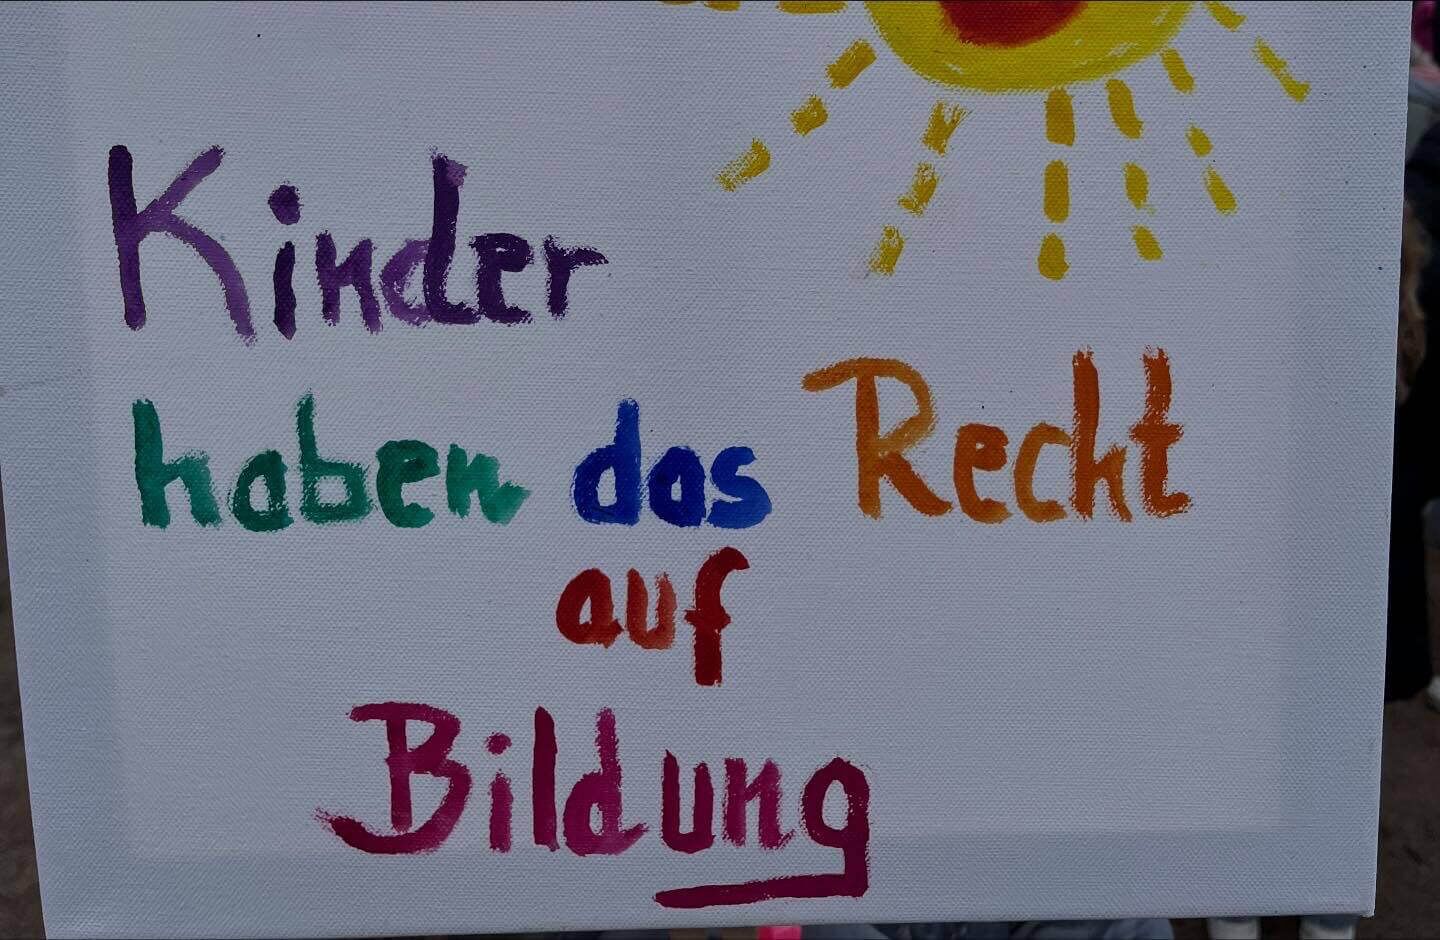 Kinder
haben das Recht
auf
Bildung